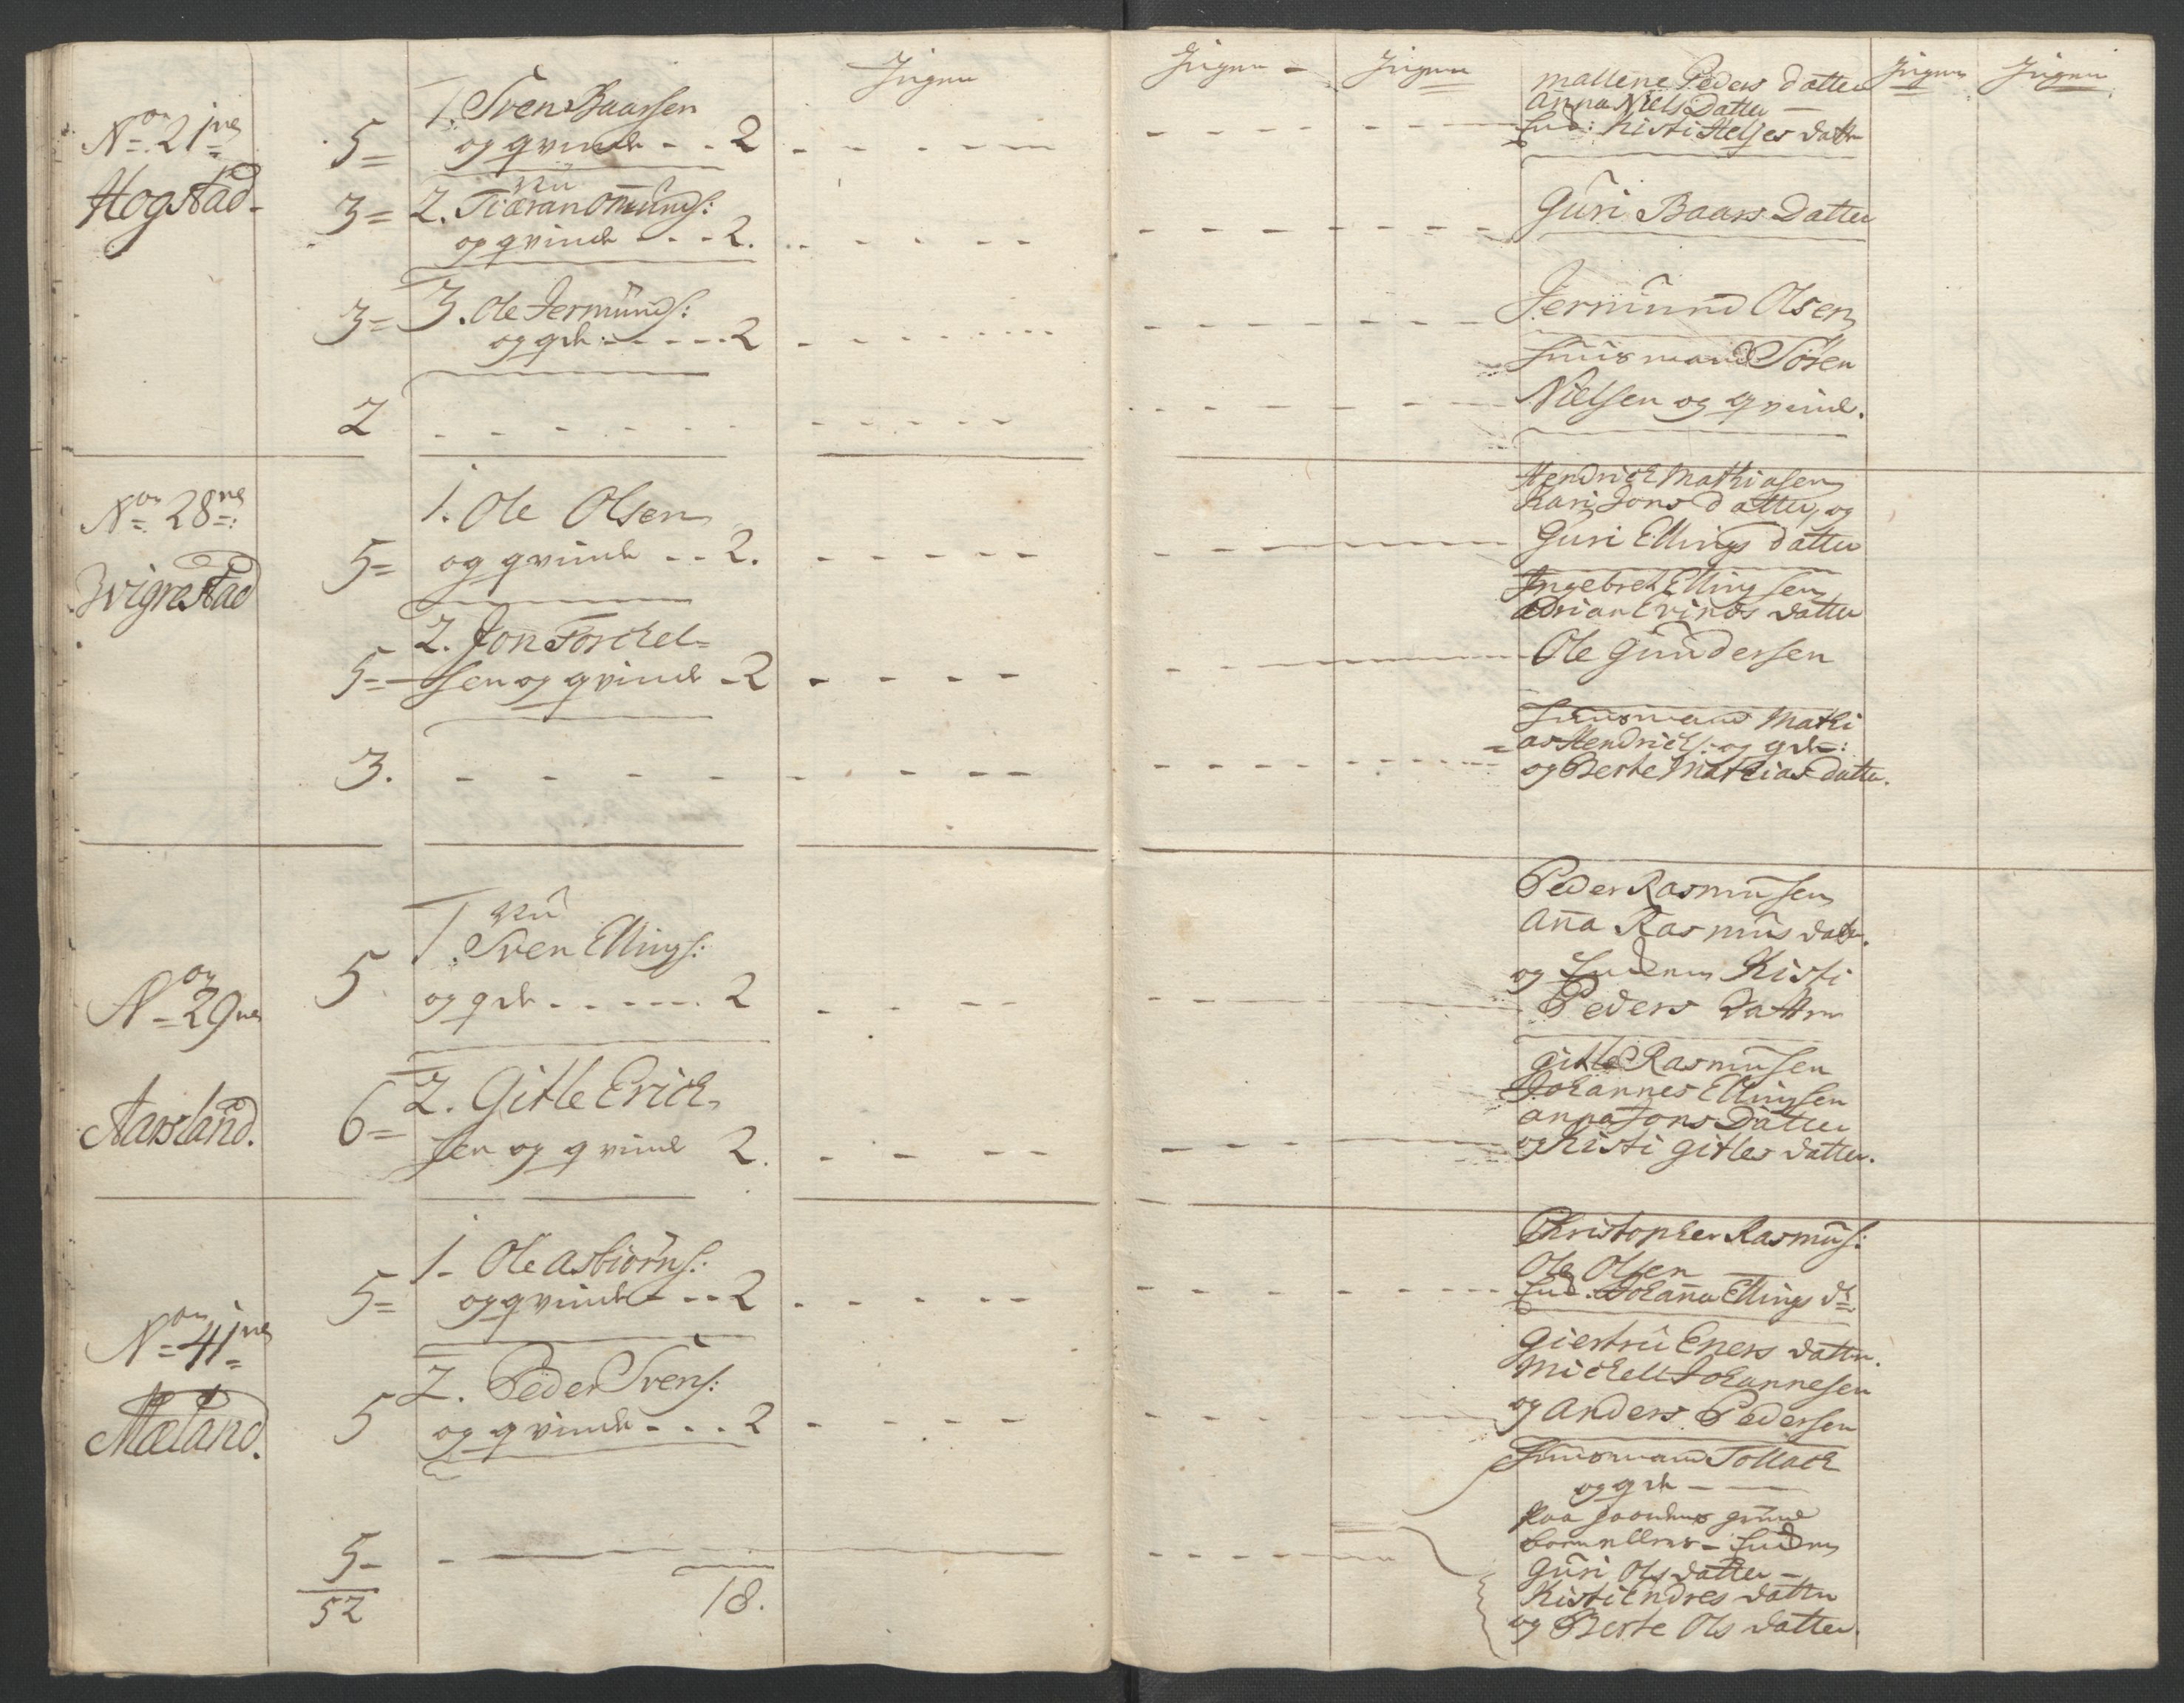 Ingen Ingen Ingen Ingen Ingen
No 21ne
Hogstad
5 = 1. Sven Baarsen
og qvinde - - 2
Mallene Peders datter
Anna Niels Datter
Ind: Kisti Heljes datter
Nu
3 = 2. Tiæran Omunds:
og qvinde - - - 2.
Guri Baars Datter
3 = 3. Ole Jermunds:
og qde: - - - - - 2
Jermund Olsen
2
Huusmand Sören
Nielsen og qvinde.
No 28ne:
Wigrestad
5 = 1. Ole Olsen
og qvinde - - 2.
Hendrich Mathiasen
Kari Jons datter, og
Guri Ellings datter
5 = 2. Jon Torchel=
sen og qvinde - 2
Ingebret Ellingsen
Adrian Evinds datter
Ole Gundersen
3.
Huusmand Mathi
as Hendrichs: og qde:
og Berte Mathias datter.
No 29ne
Aarsland.
Nu
5 1. Sven Ellings:
og qde - - - - - - 2
Peder Rasmusen
Anna Rasmus datter.
og Inderen Kisti
Peders datter
6 = 2. Gitle Erich
sen og qvinde 2.
Gitle Rasmusen
Johannes Ellingsen
Anna Jons Datter
og Kisti Gitles datter.
No 41ne
Mæland.
5 = 1 - Ole Asbiörns:
og qvinde - - - 2
Christopher Rasmus:
Ole Olsen
Ind. Johanna Ellings dr
5 2. Peder Svens:
og qvinde - - - 2
Giertru Eners datter.
Michell Johannesen
og Anders Pedersen
5 -
Huusmand Tollach
og qde
paa gaardens grund
Inder
Guri Ols datter -
Kisti Endres datter
og Berte Ols datter.
52 18.